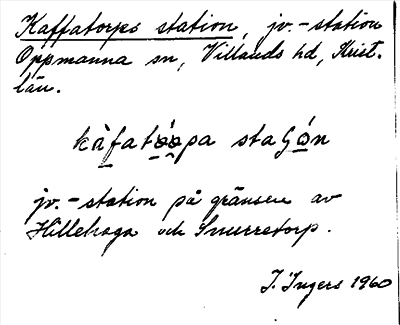 Kaffatorps station, jv.-station
Oppmanna sn, Villands hd, Krist.
län.
kàfatǫ́ǫpa staʃǫ́n
jv.-station på gränsen av
Hillehaga och Smurretorp.
I. Ingers 1960